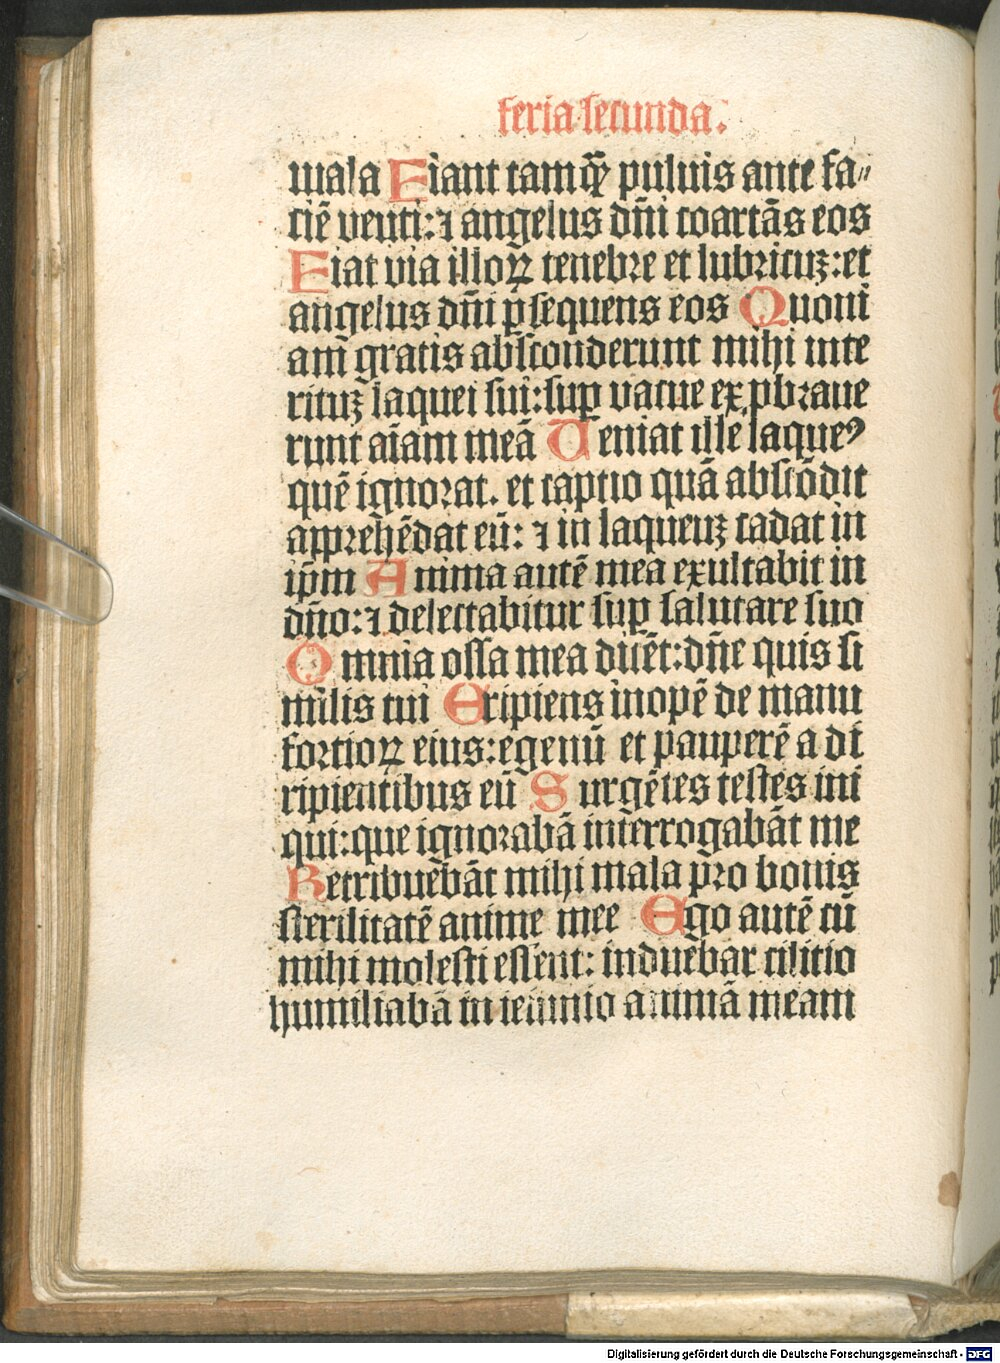 feria secunda.
mala Fiant tamqᷓ puluis ante fa⸗
ciē venti: ⁊ angelus dn̄i coartās eos
Fiat via illoꝝ tenebre et lubricuꝫ: et
angelus dn̄i ꝑsequens eos Quoni
am̄ gratis absconderunt mihi inte
rituꝫ laquei sui: suꝑ vacue exꝓbraue
runt aīam meā Veniat ille laqueꝰ
quē ignorat. et captio quā abscōdit
apprehēdat eū: ⁊ in laqueuꝫ cadat in
ip̄m Anima autē mea exultabit in
dn̄o: ⁊ delectabitur suꝑ salutare suo
Omnia ossa mea dicēt: dn̄e quis si
milis tui Eripiens inopē de manu
fortioꝝ eius: egenū et pauperē a di
ripientibus eū Surgētes testes ini
qui: que ignorabā interrogabāt me
Retribuebāt mihi mala pro bonis
sterilitatē anime mee Ego autē cū
mihi molesti essent: induebar cilitio
humiliabā in ieiunio animā meam
Digitalisierung gefördert durch die Deutsche Forschungsgemeinschaft - DFG